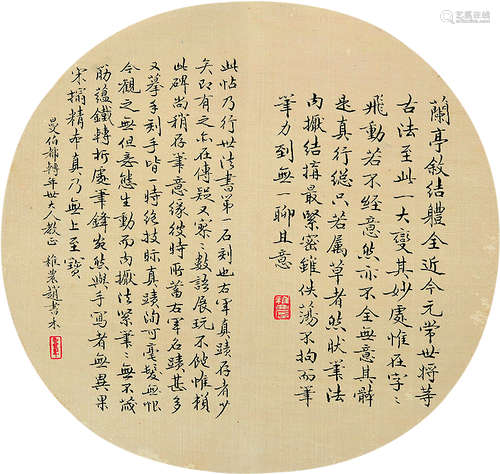 蘭亭敘結體全近今元常世將等
古法至此一大變其妙處惟在字〻
飛動若不經意然亦不全無意其
是真行縱只若屬草者然狀筆法
內擫結搆最緊密雖佚蕩不拘而筆
筆力到無一聊且意
此帖乃行世法書第一石刻也右軍真蹟存者少
矣即有之亦在傳疑又寥〻數該展玩不他惟賴
此碑尚稍存筆意緣彼時所蓄右軍名蹟甚多
又摹手刻手皆一時絕技眎真蹟洵可憂髮無恨
今觀之無但意態生動而內擫法緊〻無不
筋蘊鐵轉折處筆鋒宛然與手寫者無異果
宋搨精希真乃無上至寶
曼伯都轉年世大人教正 稚農趙書禾